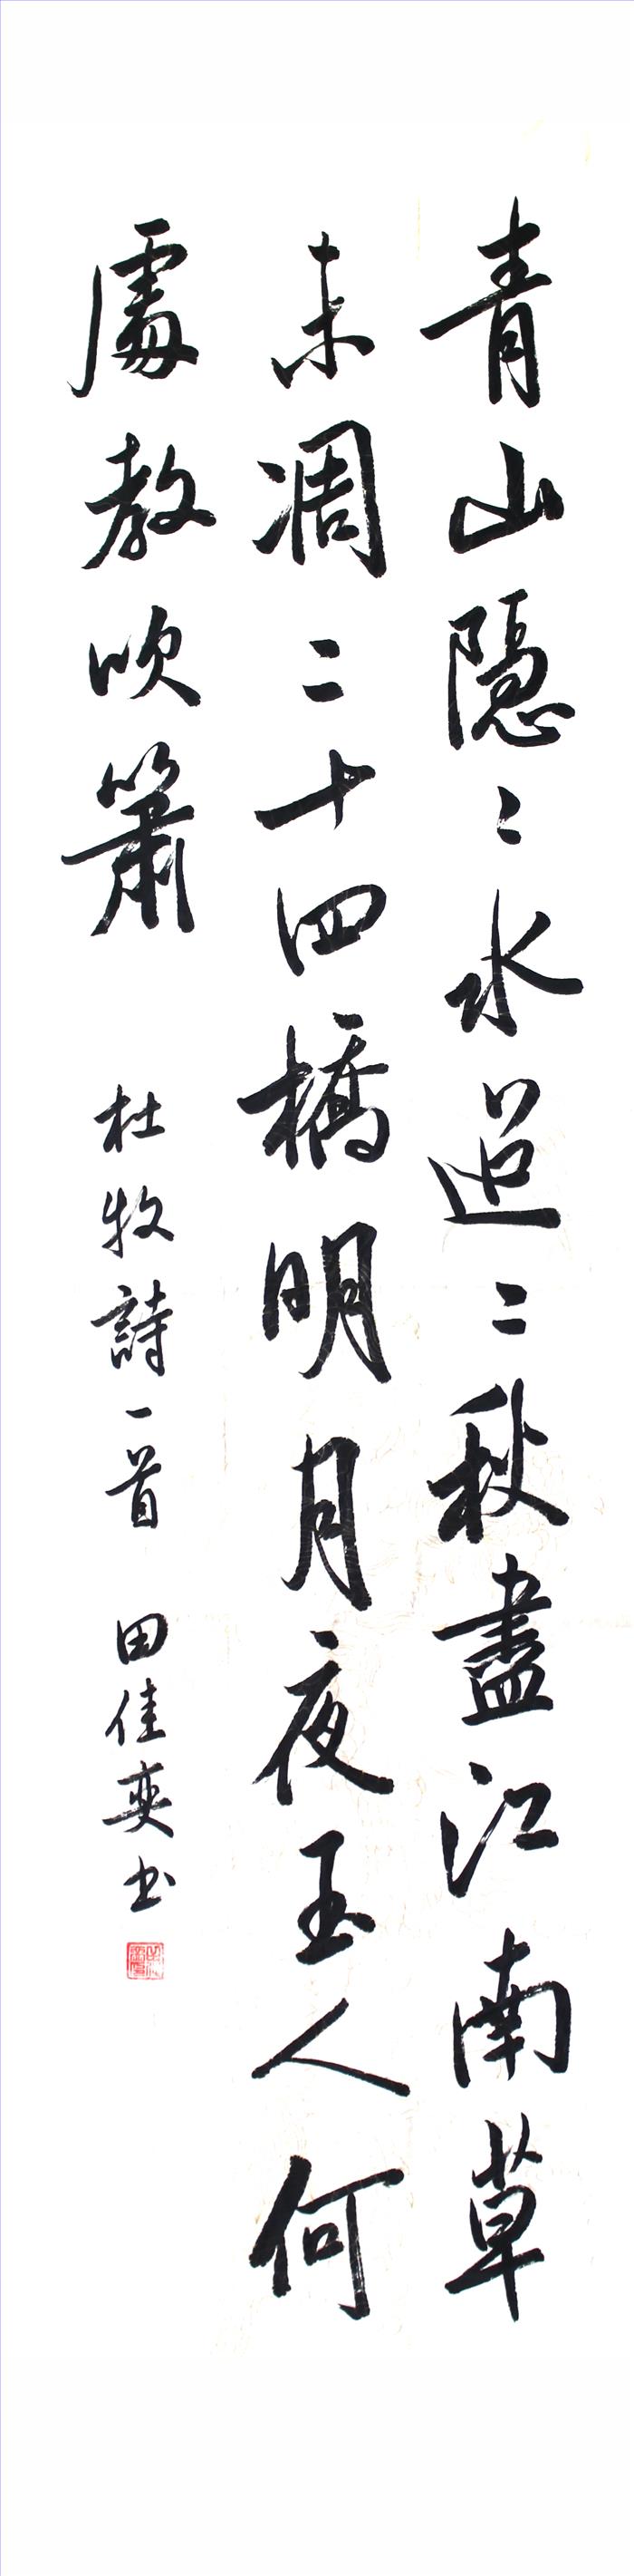 青山隱〻水迢〻秋盡江南草
未凋二十四橋明月夜玉人何
處教吹簫 杜牧詩一首 田佳奕书